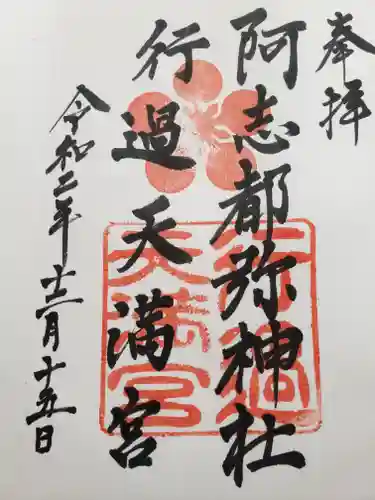 奉拝
阿志都弥神社
行過天満宮
令和二年十二月十五日